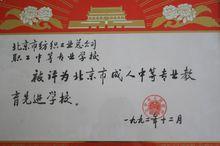 北京市纺织工业总公司
职工中等专业学校
被评为北京市成人中等专业教
育先进学校。
一九九二年十二月